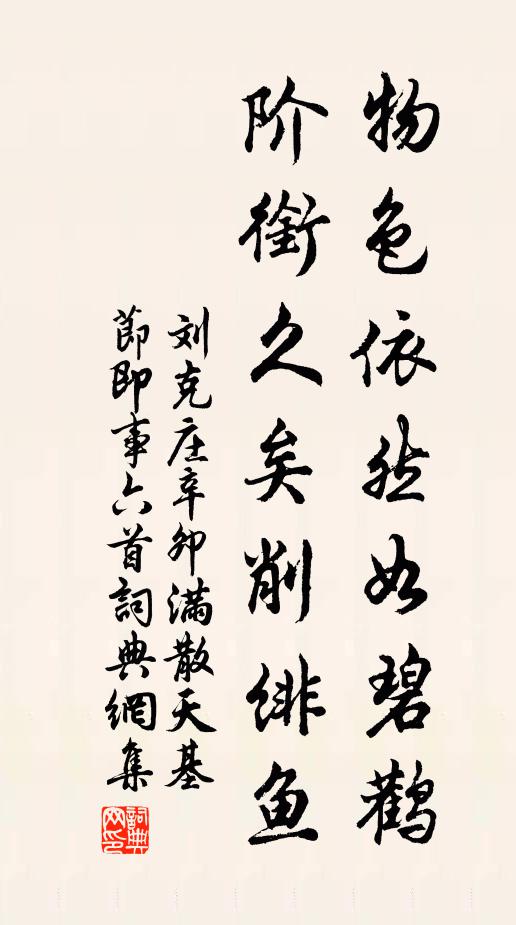 物色依然如碧鹳
阶衔久矣削绯鱼
刘克庄辛卯满散天基
节即事六首词典網集
詞典網印